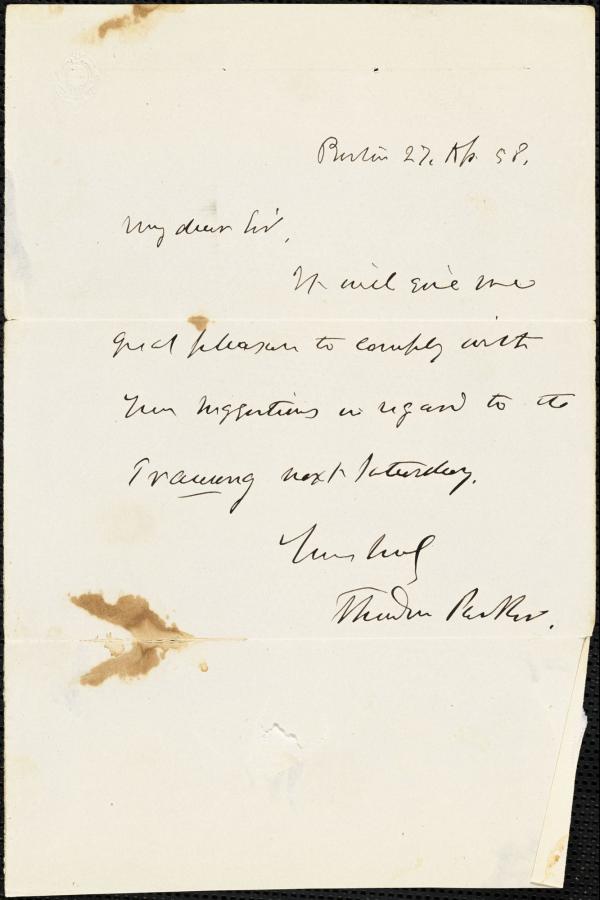 Boston 27. Ap. 58.
My dear Sir,
It will give me
great pleasure to comply with
your suggestions in regard to the
Training next Saturday.
Yours truly
Theodore Parker.